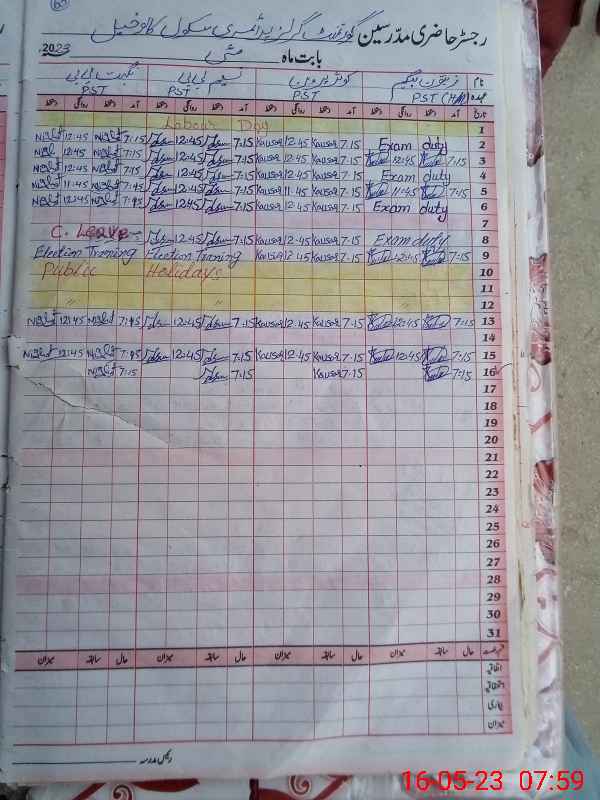 رجسٹر حاضری مدرسین گورنمنٹ گرلز پرائمری سکول کالوخیل
بابت ماہ مئی 2023
نام بیگم کوثر پروین نسیم بی بی نگہت بی بی
عہدہ PST (H) PST PST PST
تاریخ آمد دستخط روانگی دستخط آمد دستخط روانگی دستخط آمد دستخط روانگی دستخط آمد دستخط روانگی دستخط
Labour Day 1
Nighat 12:45 Nighat 7:15 12:45 7:15 Kausar 12:45 Kausar 7:15 Exam duty 2
Nighat 12:45 Nighat 7:15 12:45 7:15 Kausar 12:45 Kausar 7:15 12:45 7:15 3
Nighat 12:45 Nighat 7:15 12:45 7:15 Kausar 12:45 Kausar 7:15 Exam duty 4
Nighat 11:45 Nighat 7:15 12:45 7:15 Kausar 11:45 Kausar 7:15 11:45 7:15 5
Nighat 12:45 Nighat 7:15 12:45 7:15 Kausar 12:45 Kausar 7:15 Exam duty 6
7
C. Leave 12:45 7:15 Kausar 12:45 Kausar 7:15 Exam duty 8
Election Traning Election Traning Kausar 12:45 Kausar 7:15 12:45 7:15 9
Public Holidays 10
11
〃 〃 〃 12
Nighat 12:45 Nighat 7:15 12:45 7:15 Kausar 12:45 Kausar 7:15 12:45 7:15 13
14
Nighat 12:45 Nighat 7:15 12:45 7:15 Kausar 12:45 Kausar 7:15 12:45 7:15 15
Nighat 7:15 7:15 Kausar 7:15 7:15 16
17
18
19
20
21
22
23
24
25
26
27
28
29
30
31
حال سابقہ میزان حال سابقہ میزان حال سابقہ میزان حال سابقہ میزان
اتفاقیہ
بیماری
میزان
رئیس مدرسہ
16-05-23 07:59